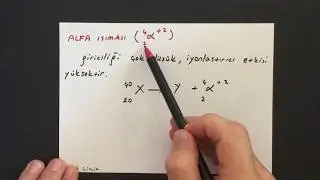 ALFA IŞIMASI ( ⁴₂α⁺² )
giriciliği çok düşük, iyonlaştırıcı etkisi
yüksektir.
⁴⁰₂₀X → Y + ⁴₂α⁺²